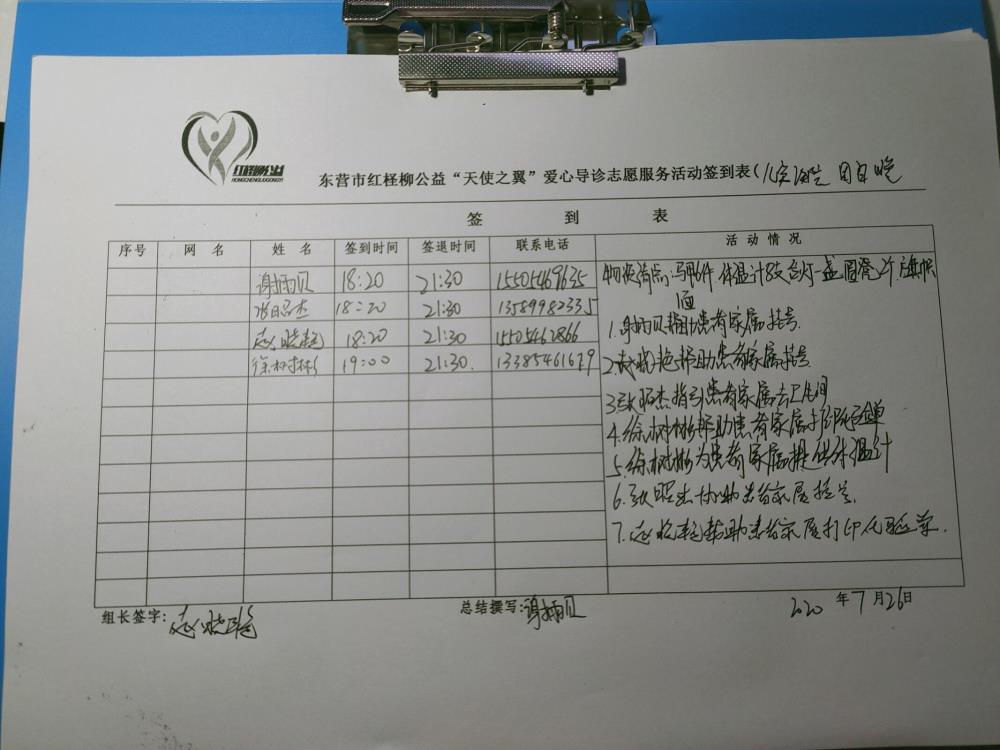 红柽柳公益
HONGCHENGLIUGONGYI
东营市红柽柳公益“天使之翼”爱心导诊志愿服务活动签到表(儿童医院 周日晚
签 到 表
序号 网 名 姓 名 签到时间 签退时间 联系电话 活 动 情 况
谢丽贝 18:20 21:30 15505469635
张昭杰 18:20 21:30 13589982335
赵晓艳 18:20 21:30 15505462866
徐树彬 19:00 21:30. 13385461679
物资清点:马甲6件.体温计8支台灯一盏圆凳2个
1.谢丽贝帮助患者家属挂号.
2.赵晓艳帮助患者家属挂号
3.张昭杰指引患者家属去卫生间
4.徐树彬帮助患者家属打印
5.徐树彬为患者家属提供体温计
6.张昭杰协助患者家属挂号.
7.赵晓艳帮助患者家属打印化验单.
组长签字:赵晓艳 总结撰写:谢丽贝 2020 年 7 月 26日